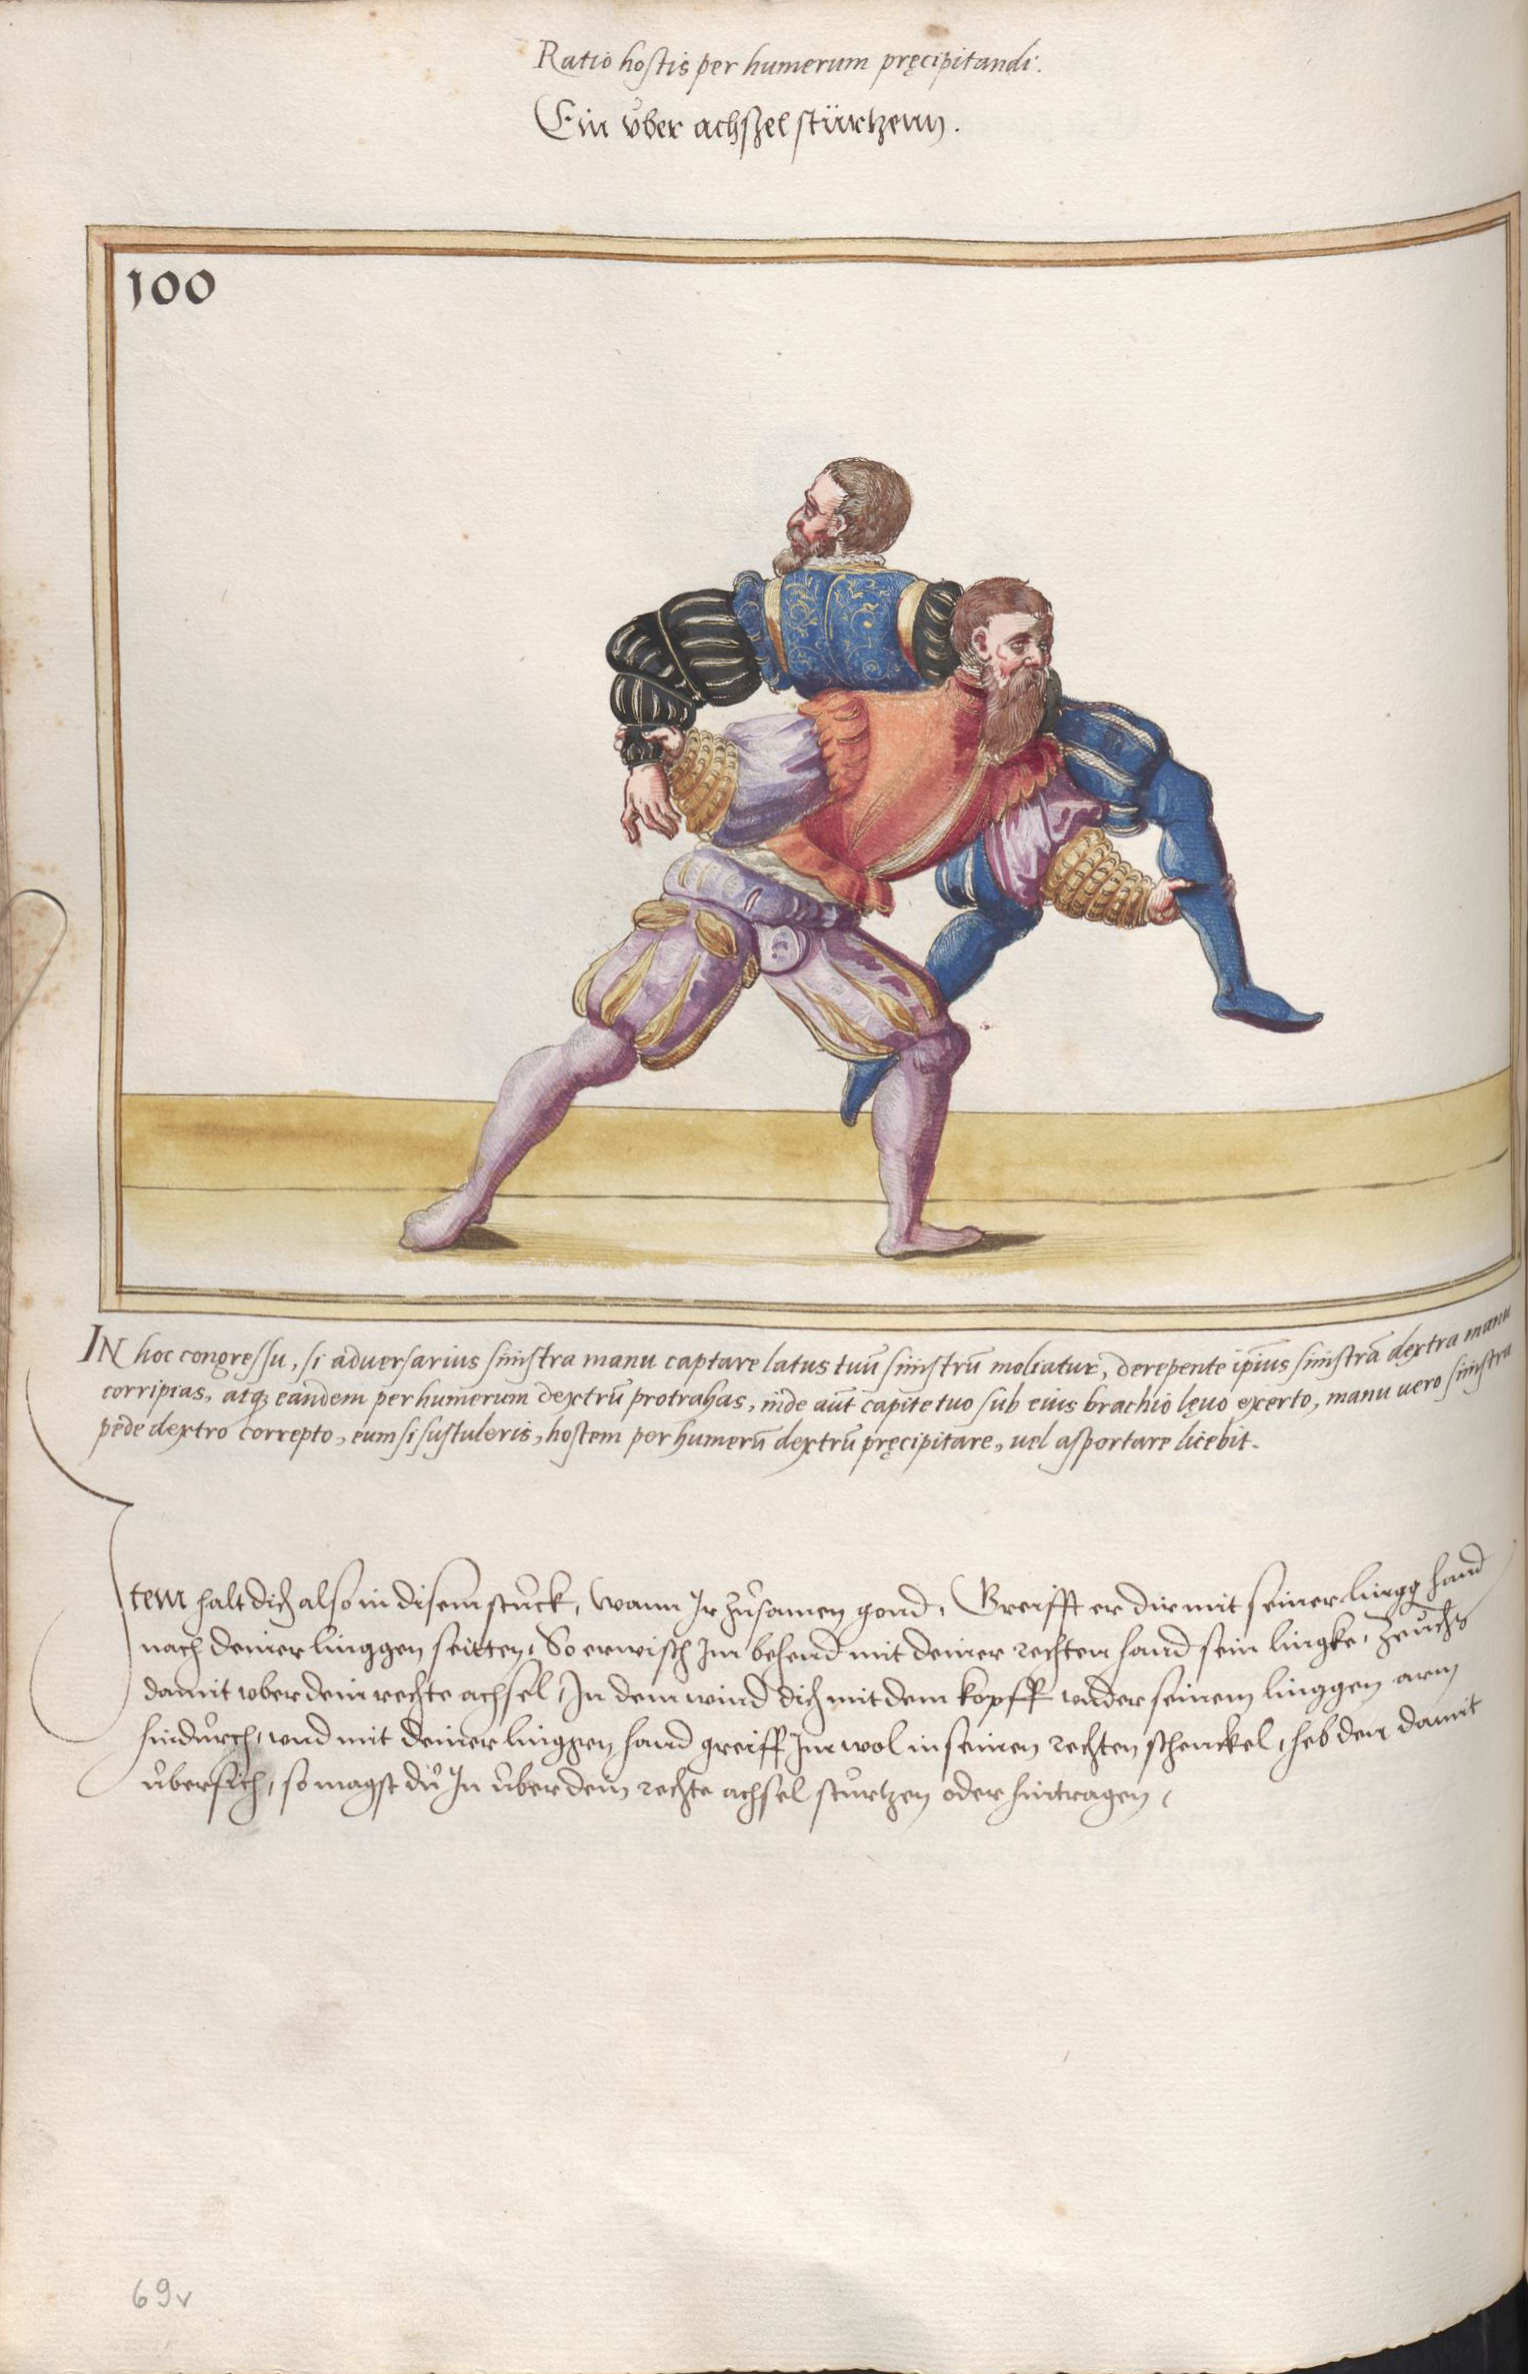 Ratio hostis per humerum pręcipitandi.
Ein v̊ber achszel stürtzenn.
100
IN hoc congressu, si aduersarius sinistra manu captare latus tuū sinistrū moliatur, derepente ipsius sinistrā dextra manu
corripias, atq; eandem per humerum dextrū protrahas, inde aūt capite tuo sub eius brachio lęuo exerto, manu uero sinistra
pede dextro correpto, eum si sustuleris, hostem per humerū dextrū pręcipitare, uel asportare licebit.
Item halt dich also in disem stuck, wann Ir zůsamen gond, Greifft er dir mit seiner lingg hand
nach deiner linggen seitten, So erwisch Im behend mit deiner rechten hand sein lingke, Zeuchs
damit vber dein rechte achsel, In dem wind dich mit dem kopff vnder seinem linggen arm
hindurch, vnd mit deiner linggen hand greiff Im wol in seinen rechten schenckel, heb den damit
übersich, so magst du In über dein rechte achsel stürtzen oder hintragen,
69v